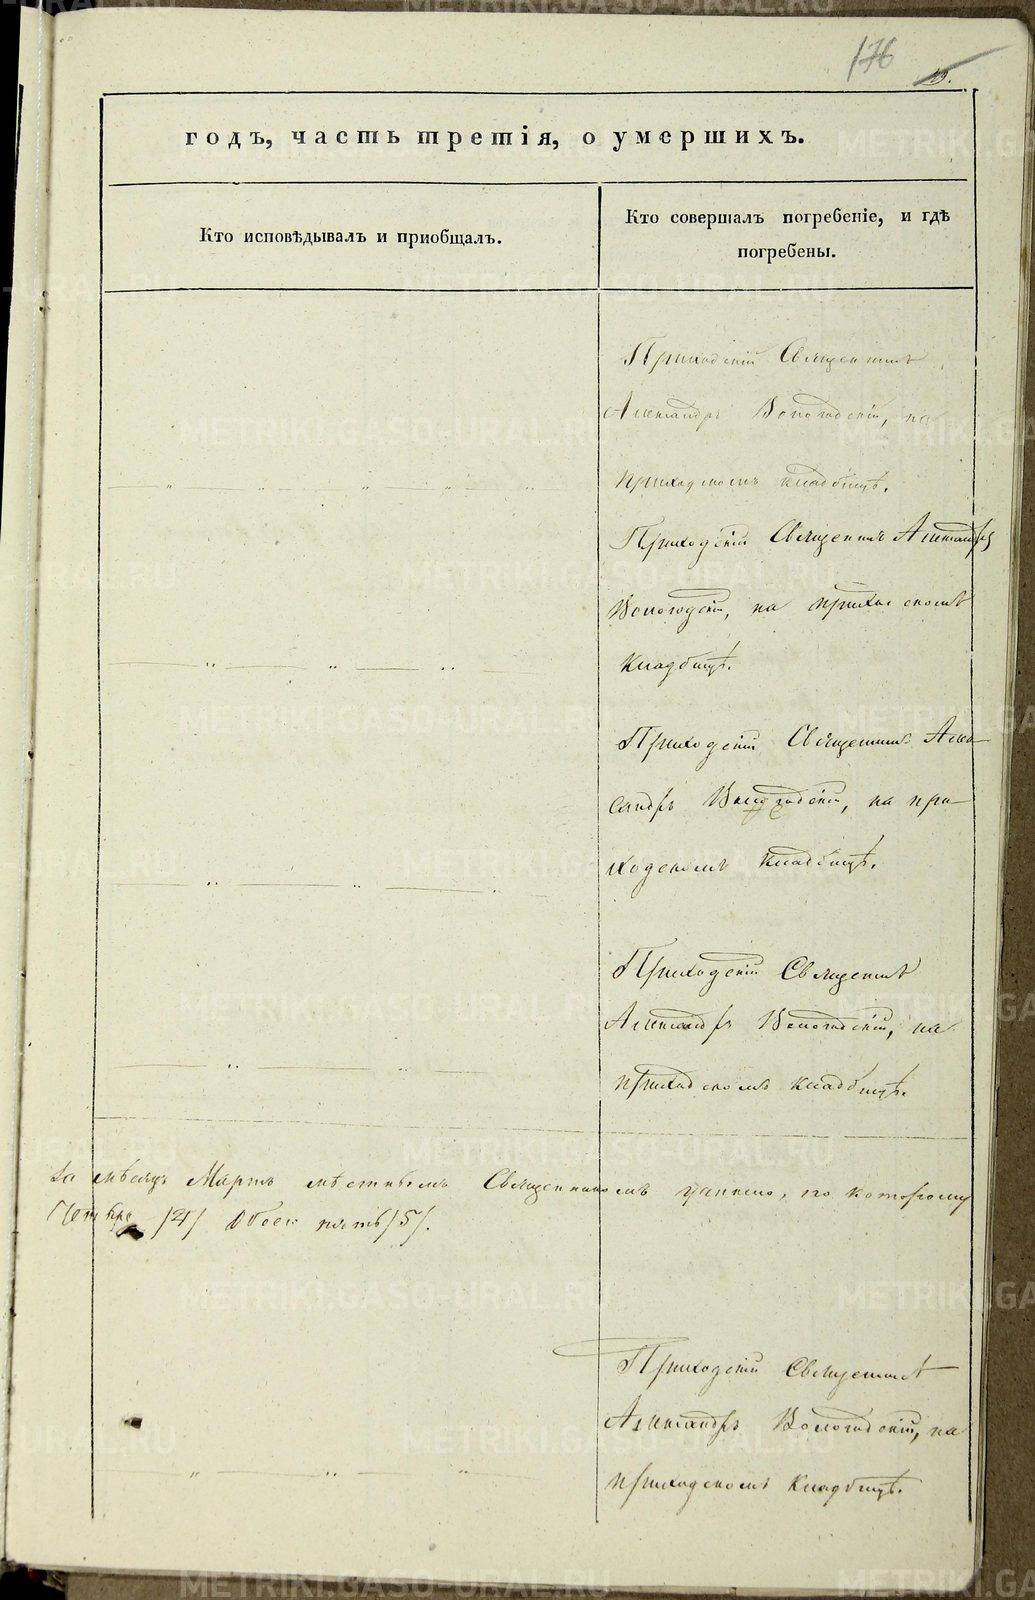 176
годъ, часть третія, о умершихъ.
Кто исповѣдывалъ и приобщалъ.
Кто совершалъ погребеніе, и гдѣ
погребены.
Приходскій Священникъ
Александръ Вологодскій, на
приходскомъ кладбищѣ.
Приходскій Священникъ Александръ
Вологодскій, на приходскомъ
кладбищѣ.
Приходскій Священникъ Алек-
сандръ Вологодскій, на при-
ходскомъ кладбищѣ.
Приходскій Священникъ
Александръ Вологодскій, на
приходскомъ кладбищѣ.
За мѣсяцъ Мартъ мѣстнымъ Священникомъ, по которому
/4/ Обоего пять /5/.
Приходскій Священникъ
Александръ Вологодскій, на
приходскомъ кладбищѣ.
METRIKI.GASO-URAL.RU